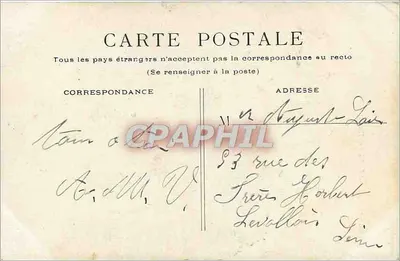 CARTE POSTALE
Tous les pays étrangers n'acceptent pas la correspondance au recto
(Se renseigner à la poste)
CORRESPONDANCE
ADRESSE
A. M. V.
August
53 rue des
Frères Herbert
Levallois
CPAPHIL